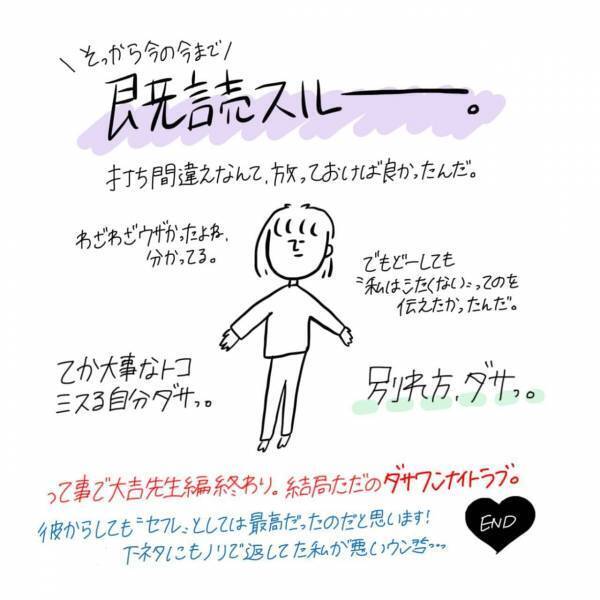 \そっから今の今まで/
既読スルー。
打ち間違えなんて、放っておけば良かったんだ。
わざわざウザかったよね、
分かってる。
でもどーしても
"私はミたくない"ってのを
伝えたかったんだ。
てか大事なトコ
ミスる自分ダサっ。
別れ方、ダサっ。
って事で大吉先生編終わり。結局ただのダサワンナイトラブ。
彼からしても"セフレ"としては最高だったのだと思います!
下ネタにもノリで返してた私が悪いウン
END